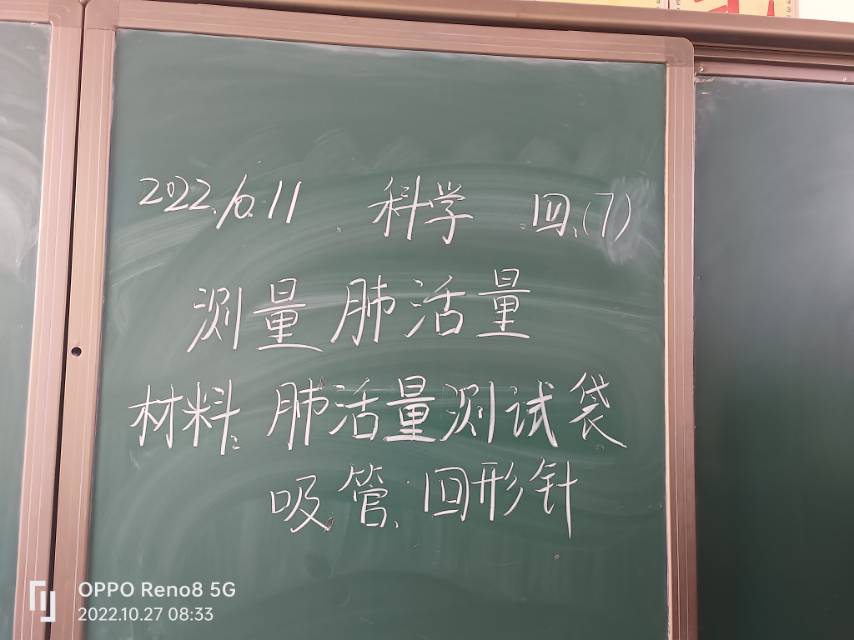 2022.10.11 科学 四.(7)
测量肺活量
材料: 肺活量测试袋
吸管、回形针
OPPO Reno8 5G
2022.10.27 08:33